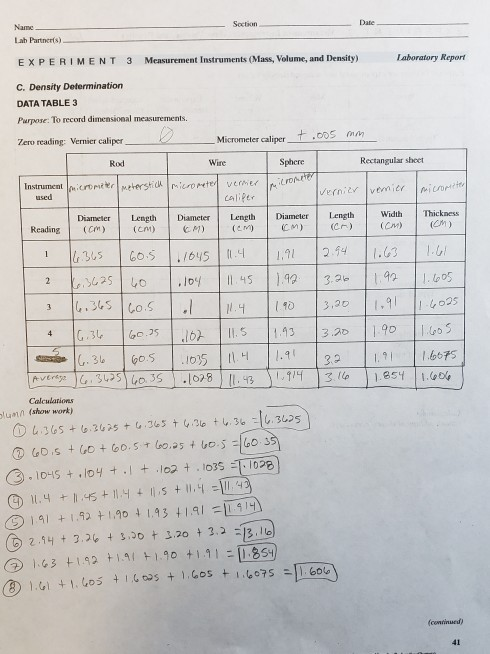 Name
Section
Date
Lab Partner(s)
EXPERIMENT 3 Measurement Instruments (Mass, Volume, and Density) Laboratory Report
C. Density Determination
DATA TABLE 3
Purpose: To record dimensional measurements.
Zero reading: Vernier caliper Ø Micrometer caliper + .005 mm
Rod Wire Sphere Rectangular sheet
Instrument used micrometer meterstick micrometer vernier caliper micrometer vernier vernier micrometer
Reading Diameter (cm) Length (cm) Diameter (cm) Length (cm) Diameter (cm) Length (cm) Width (cm) Thickness (cm)
1 6.365 60.5 .1045 11.4 1.91 2.94 1.63 1.61
2 6.3625 60 .104 11.45 1.92 3.26 1.92 1.605
3 6.365 60.5 .1 11.4 1.90 3.20 1.91 1.6025
4 6.36 60.25 .102 11.5 1.93 3.20 1.90 1.605
5 6.36 60.5 .1035 11.4 1.91 3.2 1.91 1.6075
Average 6.3625 60.35 .1028 11.43 1.914 3.16 1.854 1.606
Calculations
column (show work)
① 6.365 + 6.3625 + 6.365 + 6.36 + 6.36 = 6.3625
② 60.5 + 60 + 60.5 + 60.25 + 60.5 = 60.35
③ .1045 + .104 + .1 + .102 + .1035 = .1028
④ 11.4 + 11.45 + 11.4 + 11.5 + 11.4 = 11.43
⑤ 1.91 + 1.92 + 1.90 + 1.93 + 1.91 = 1.914
⑥ 2.94 + 3.26 + 3.20 + 3.20 + 3.2 = 3.16
⑦ 1.63 + 1.92 + 1.91 + 1.90 + 1.91 = 1.854
⑧ 1.61 + 1.605 + 1.6025 + 1.605 + 1.6075 = 1.606
(continued)
41